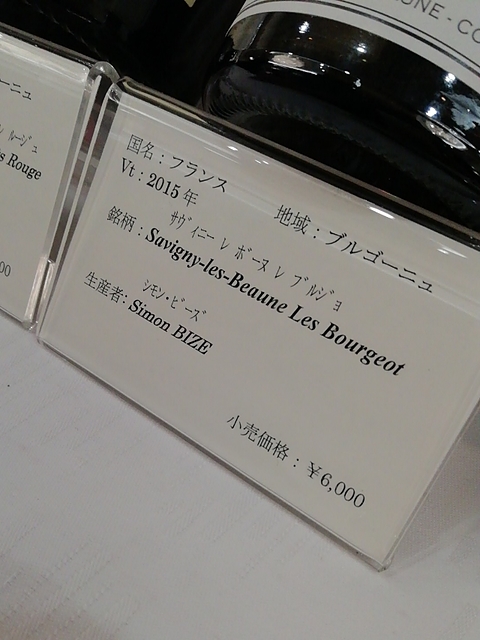 UNE - CO
ーニュ
ルージュ
s Rouge
00
国名：フランス
地域：ブルゴーニュ
Vt：2015 年
ｻｳﾞｨﾆｰ ﾚ ﾎﾞｰﾇ ﾚ ﾌﾞﾙｼﾞｮ
銘柄：Savigny-les-Beaune Les Bourgeot
ｼﾓﾝ・ﾋﾞｰｽﾞ
生産者：Simon BIZE
小売価格：￥6,000